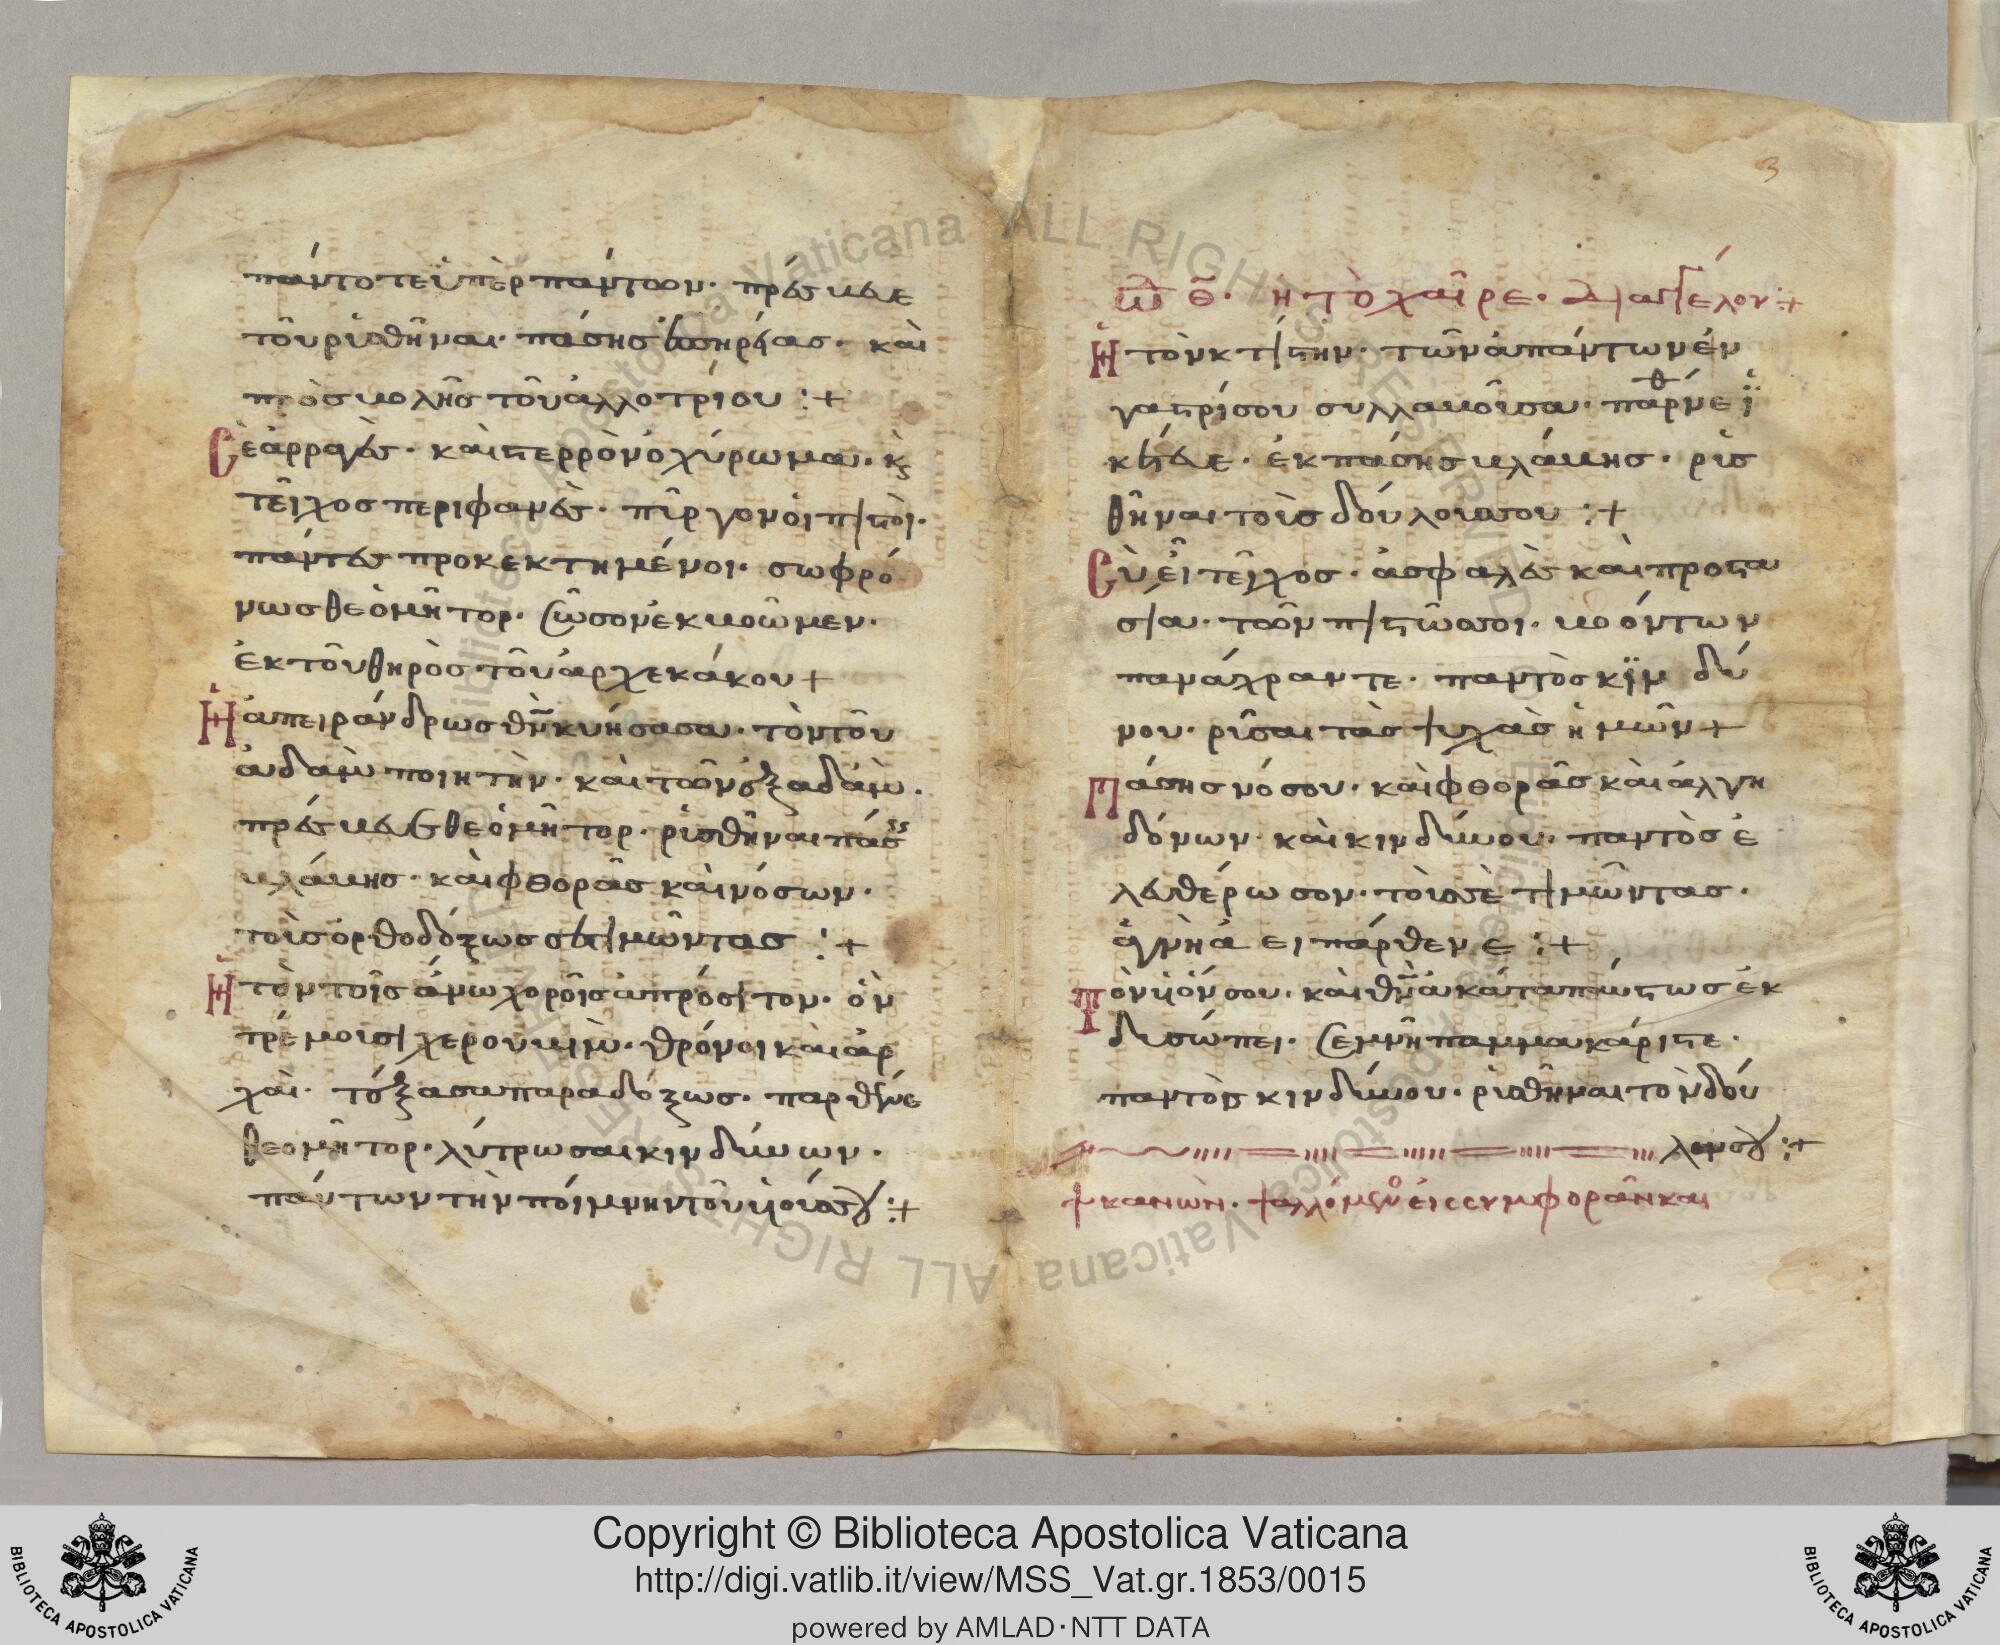 πάντοτε ὑπὲρ πάντων· πρέσβευε
τοῦ ῥυσθῆναι· πάσης
προσβολῆς τοῦ ἀλλοτρίου :+
Σὲ ἀρραγὲς· καὶ στερρὸν ὀχύρωμα· κ̀
τεῖχος περιφανὲς· πῦργον οἱ πιστοὶ·
πάντες προκεκτημένοι· σωφρό
νως θεομῆτορ· σῶσον ἐκβοῶμεν·
ἐκ τοῦ θηρὸς τοῦ ἀρχεκάκου +
Ἡ ἀπειράνδρως θ̅ν̅ κυήσασα· τὸν τοῦ
ἀδὰμ ποιητὴν· καὶ τῶν ἐξ ἀδάμ·
πρέσβευε θεομῆτορ· ῥυσθῆναι πάσης
βλάβης· καὶ φθορᾶς καὶ νόσων·
τοὺς ὀρθοδόξως σὲ τιμῶντας :+
Ἡ τὸν τοῖς ἄνω χοροῖς ἀπρόσιτον· ὃν
τρέμουσι χερουβὶμ· θρόνοι καὶ ἀρ
χαὶ· τέξασα παραδόξως· παρθένε
θεομῆτορ· λύτρωσαι κινδύνων·
πάντων τὴν ποίμνην τοῦ υἱοῦ σου :+
3
ὠδ θ̅· ἡ τὸ χαῖρε· δι ἀγγέλου :+
Ἡ τὸν κτίστην· τῶν ἁπάντων ἐν
γαστρί σου συλλαβοῦσα· παρθένε ἱ
κέτευε· ἐκ πάσης βλάβης· ῥυσ
θῆναι τοὺς δούλους σου :+
Σὺ εἶ τεῖχος· ἀσφαλὲς καὶ προστα
σία· τῶν πιστῶς σοι· βοόντων
πανάχραντε· παντὸς κϊν δύ
νου· ρῦσαι τὰς ψυχὰς ἡμῶν +
Πάσης νόσου· καὶ φθορᾶς καὶ ἀλγη
δόνων· καὶ κινδύνου· παντὸς ἐ
λευθέρωσον· τοὺς σὲ τιμῶντας·
ἁγνὴ ἀειπάρθενε :+
Τὸν υἱόν σου· καὶ θ̅ν̅ ἀκαταπαύστως ἐκ
δυσώπει· σεμνὴ παμμακάριστε·
παντὸς κινδύνου· ῥυσθῆναι τὸν δοῦ
λον σου :+
κανὼν· ψαλλόμενος εἰς συμφορὰν και
Copyright © Biblioteca Apostolica Vaticana
http://digi.vatlib.it/view/MSS_Vat.gr.1853/0015
powered by AMLAD·NTT DATA
BIBLIOTECA APOSTOLICA VATICANA
BIBLIOTECA APOSTOLICA VATICANA